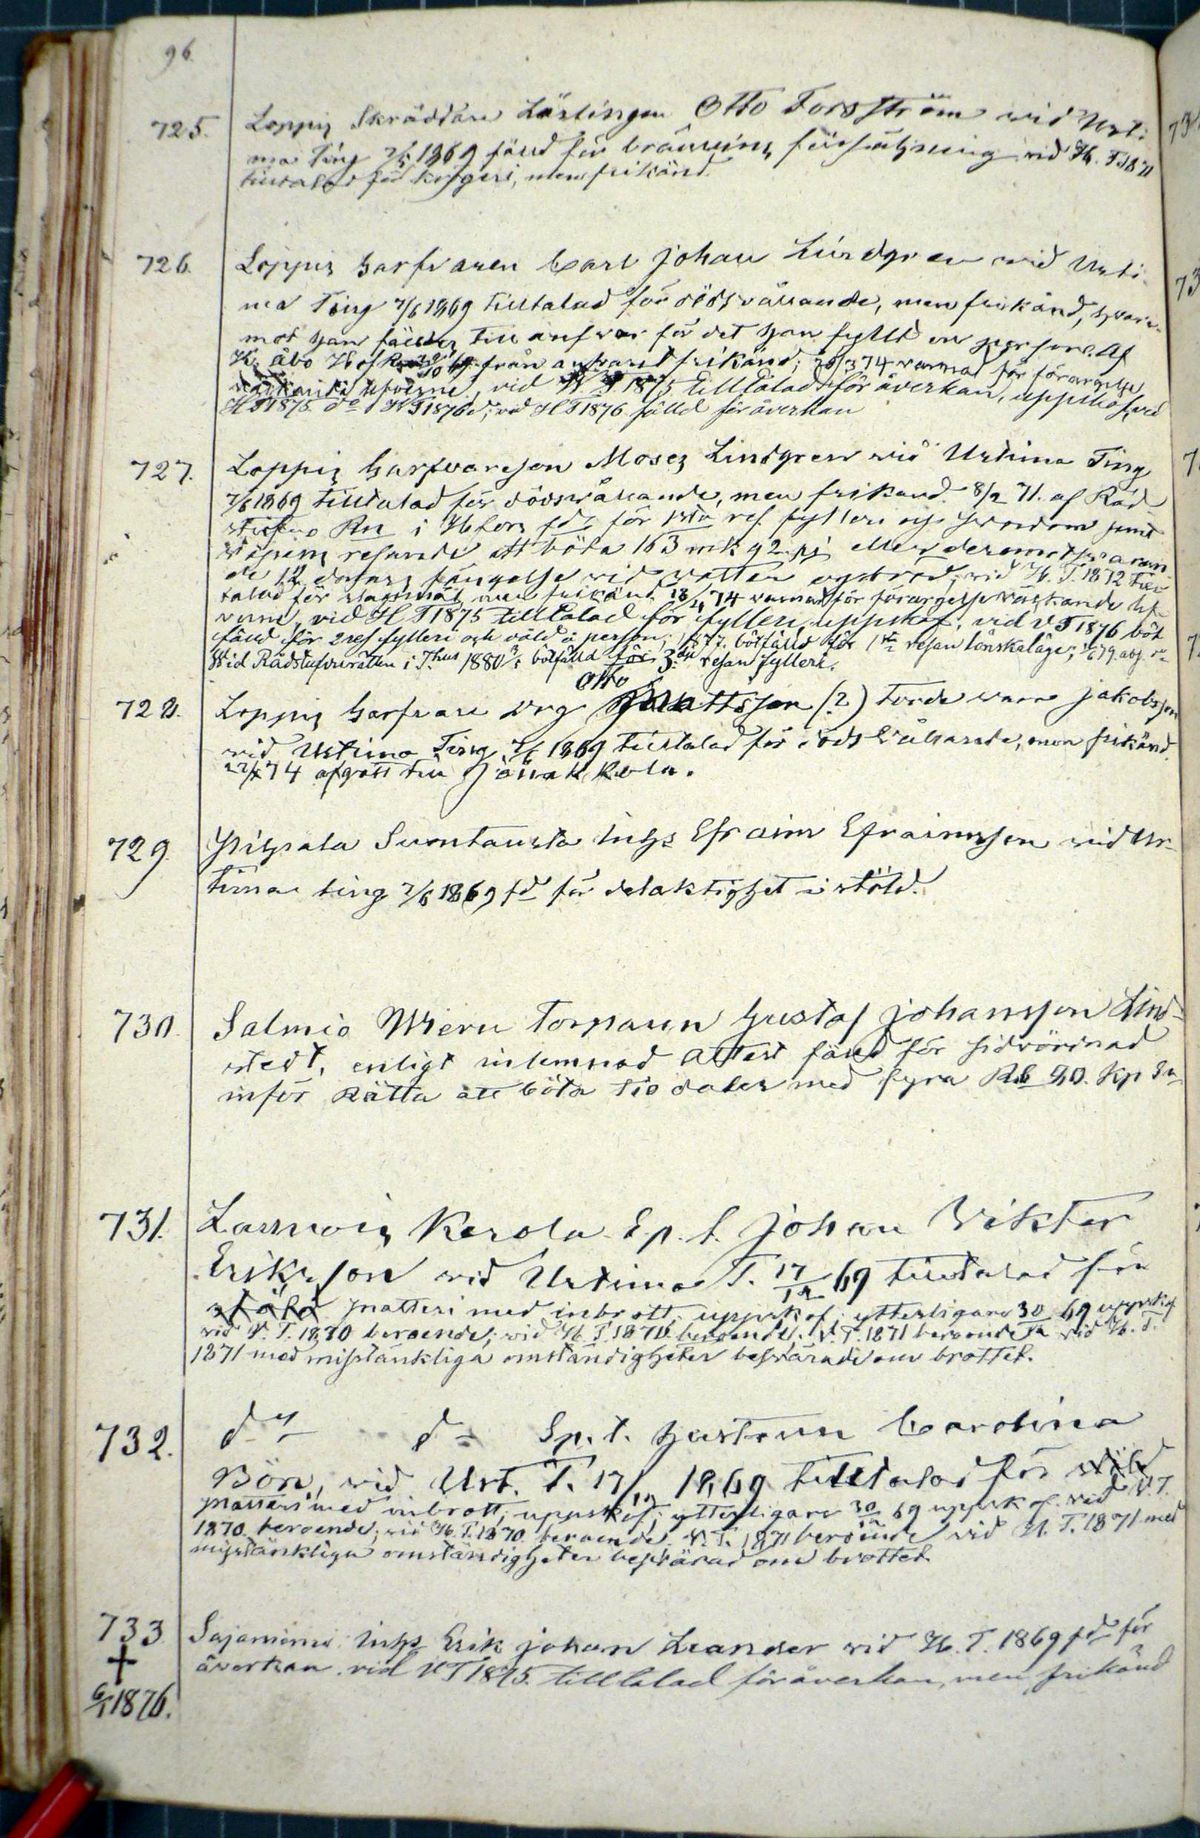 96.
725. Loppis Skräddare Lärlingen Otto Forsström wid Urti-
ma Ting 7/6 1869 fälld för bränvins försäljning wid H. T. 1871
tilltalad för krögeri, men frikänd.
726. Loppis Garfvaren Carl Johan Lindgren wid Urti-
ma Ting 7/6 1869 tilltalad för dödsvållande, men frikänd, hvare-
mot han fälldes till answar för det han fylld en person. Af
K. Åbo Hof R 69 från answaret frikänd; 26/3 74 warnad för förargelse
wäckande lefverne, vid H T 1875 tilltalad för åverkan, uppskof, vid
H T 1875 do VT 1876 d; vid H T 1876 fälld för åverkan
727. Loppis Garfvareson Moses Lindgren wid Urtima Ting
7/6 1869 tilltalad för dödsvållande, men frikänd. 8/2 71. af Råd
stufvo Rn i H:fors fd för 1sta res. fylleri och swordom samt
resande att böta 163 mk 92 pi eller deremot swaran-
de 12 dagars fängelse vid vatten och bröd; wid H. T. 1872 till-
talad för slagsmål men frikänd 18/4 74 warnad för förargelse wäckande lef-
verne, vid H T 1875 tilltalad för fylleri, uppskof, vid V T 1876 böt
fälld för 2 res fylleri och våld å person; 77. bötfälld för 1sta resan lönskaläge; 79. 
Wid Rådstufvurätten i T:hus 1880 bötfälld för 3:dje resan fylleri.
Otto
728. Loppis Garfvare Drg Mattsson (?) torde vara Jakobsson
wid Urtima Ting 7/6 1869 tilltalad för dödsvållande, men frikänd.
22/4 74 afgått till Janakkala.
729. Pilpala Suontausta Inhs Efraim Efraimsson wid Ur-
tima ting 7/6 1869 fd för delaktighet i stöld.
730. Salmis Mieru Torparen Gustaf Johansson Lind-
stedt, enligt inlemnad attest fälld för sidvördnad
inför Rätta att böta tio daler med fyra Rb 90. Kp Sr
731. Launois Kerola Sp. t. Johan Viktor
Eriksson wid Urtima T. 17/12 69 tilltalad för
stöld snatteri med inbrott, uppskof; ytterligare 30/12 69 uppskof
wid V. T. 1870 beroende; wid H. T. 1870 beroende. V. T. 1871 beroende wid H. T.
1871 med misstänkliga omständigheter besvärad om brottet.
732. do do Sp. t. hustrun Carolina
Bön, wid Urt. T. 17/12 1869 tilltalad för stöld
snatteri med inbrott, uppskof; ytterligare 30/12 69 uppskof wid V. T.
1870 beroende; wid H. T. 1870 beroende. V. T. 1871 beroende wid H. T. 1871 med
misstänkliga omständigheter besvärad om brottet.
733 Sajaniemi Inhs Erik Johan Leander wid H. T. 1869 fd för
† åverkan. vid V T 1875 tilltalad för åverkan, men frikänd
6/1 1876.